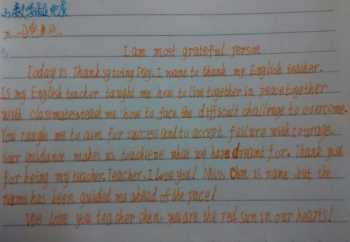 I am most grateful person
Today is Thanksgiving Day. I want to thank my English teacher.
Is my English teacher taught me how to live together in peace together
with classmates, teach me how to face the difficult challenge to overcome.
You taught me to aim for success and to accept failure with courage.
Your guidance makes us to achieve what we have dreamt for. Thank you
for being my teacher. Teacher, I love you! Miss Chen is name but the
has been guided me ahead of the pace!
We love you teacher chen. you are the red sun in our hearts!